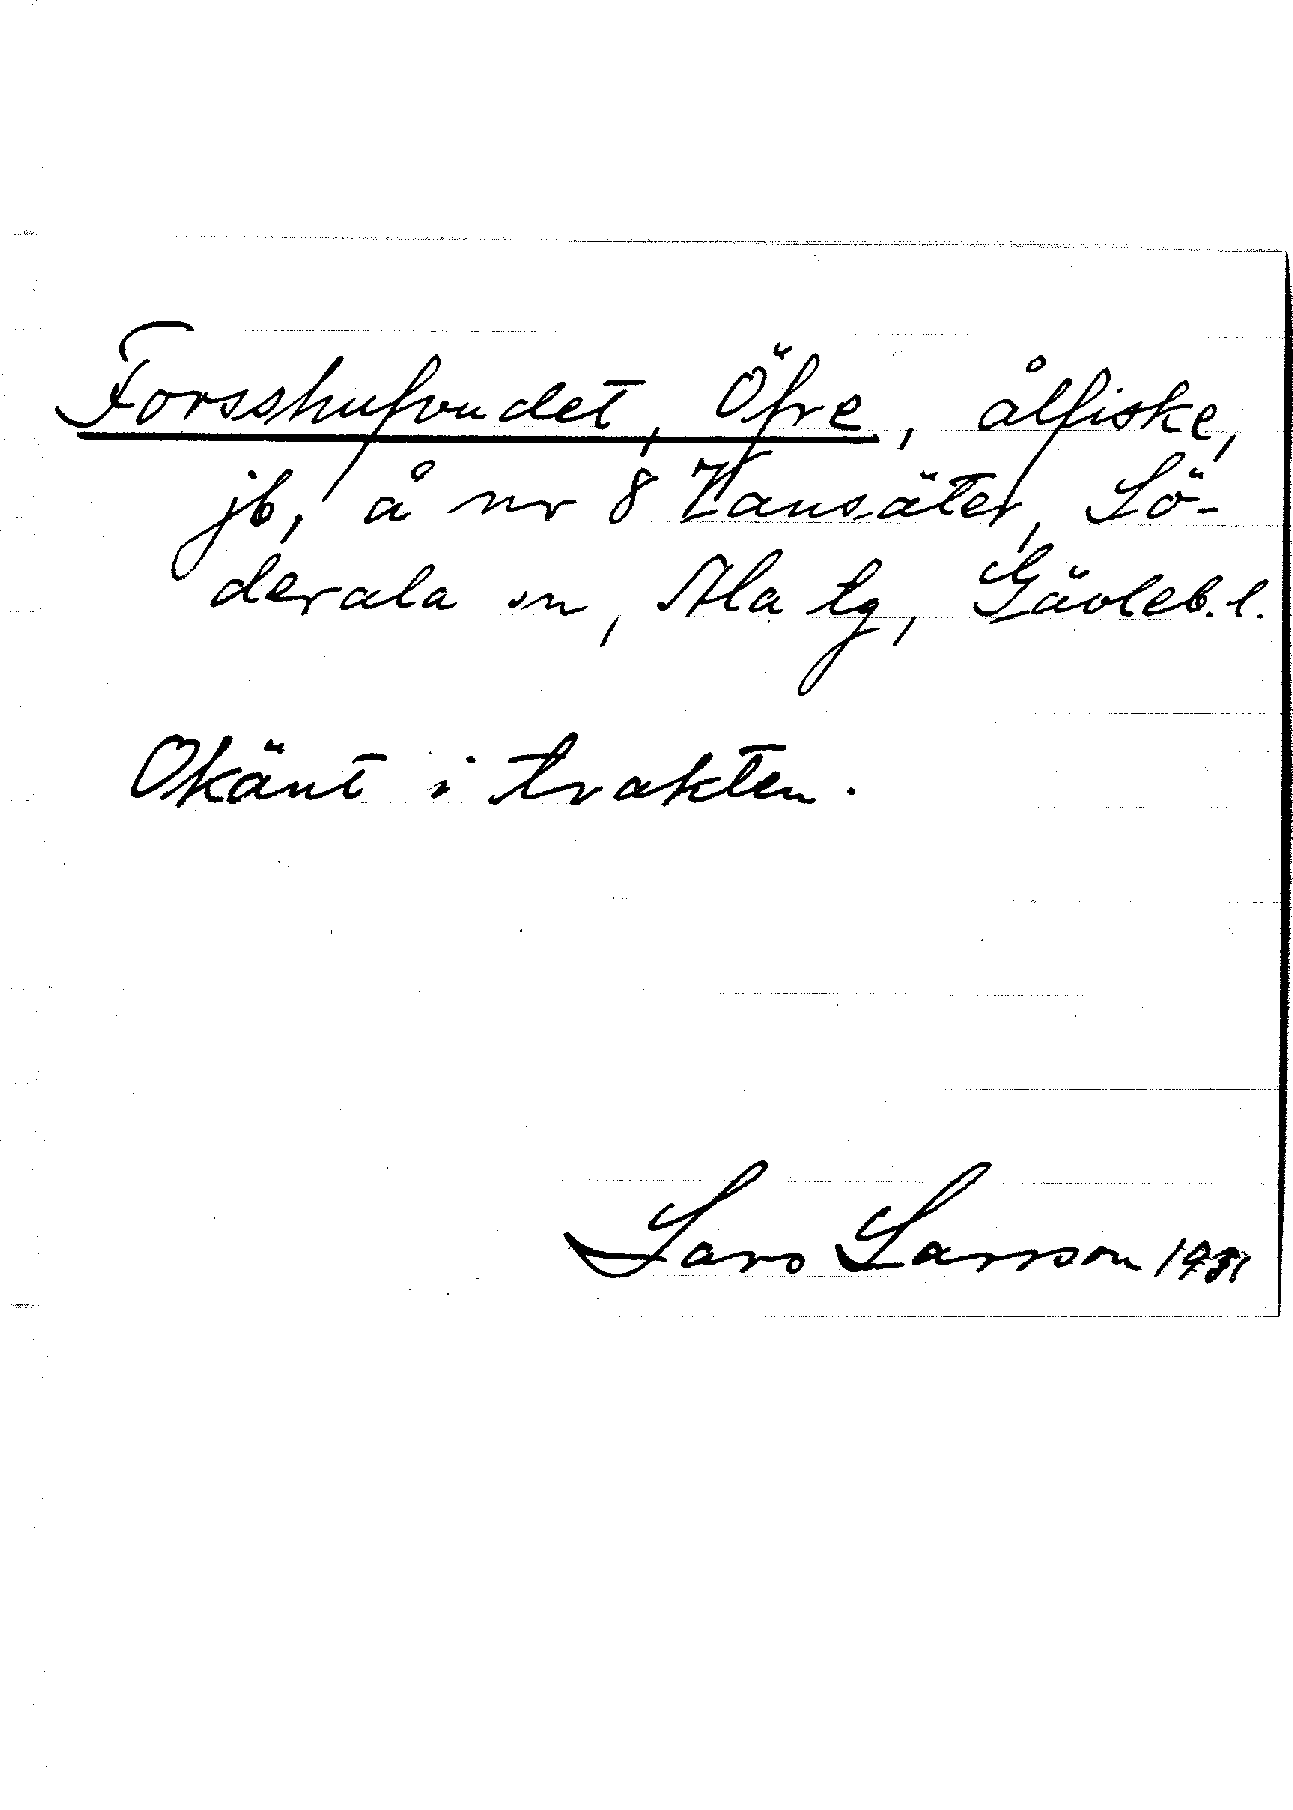 Forsshufvudet, Öfre, ålfiske,
jb, å nr 8 Vansäter, Sö-
derala sn, Ala tg, Gävleb.l.
Okänt i trakten.
Lars Larsson 1981